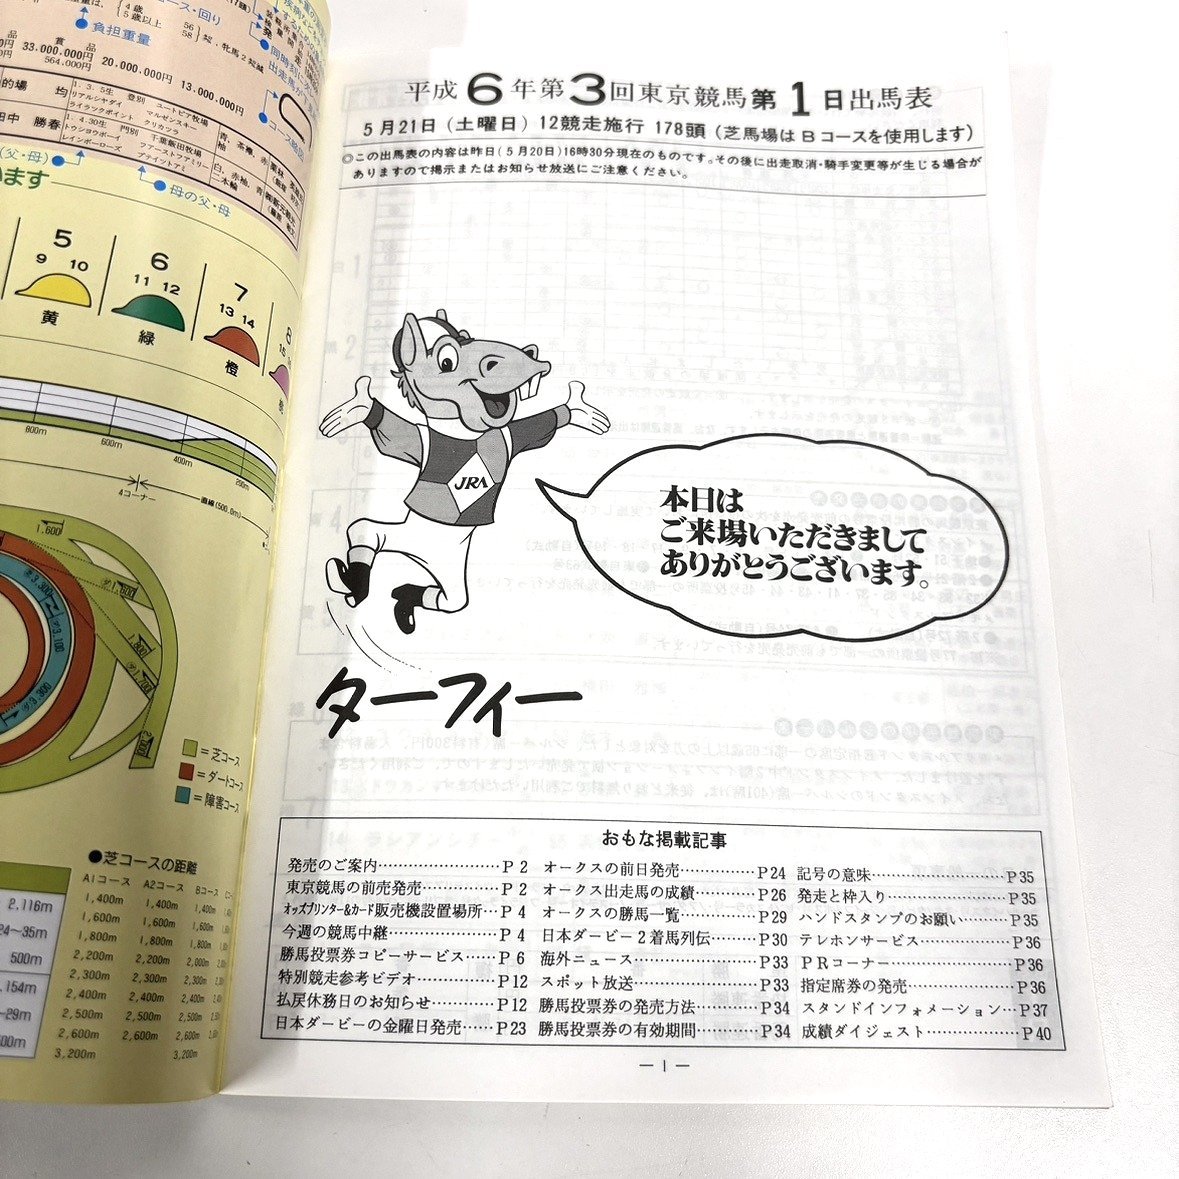 平成6年第3回東京競馬第1日出馬表
5月21日(土曜日)12競走施行 178頭(芝馬場はBコースを使用します)
◎この出馬表の内容は昨日(5月20日)16時30分現在のものです。その後に出走取消・騎手変更等が生じる場合が
ありますので掲示またはお知らせ放送にご注意ください。
JRA
本日は
ご来場いただきまして
ありがとうございます。
ターフィー
おもな掲載記事
発売のご案内……………………P 2
東京競馬の前売発売……………P 2
オッズプリンター&カード販売機設置場所…P 4
今週の競馬中継…………………P 4
勝馬投票券コピーサービス……P 6
特別競走参考ビデオ……………P12
払戻休務日のお知らせ…………P12
日本ダービーの金曜日発売……P23
オークスの前日発売……………P24
オークス出走馬の成績…………P26
オークスの勝馬一覧……………P29
日本ダービー2着馬列伝………P30
海外ニュース……………………P33
スポット放送……………………P33
勝馬投票券の発売方法…………P34
勝馬投票券の有効期間…………P34
記号の意味………………………P35
発走と枠入り……………………P35
ハンドスタンプのお願い………P35
テレホンサービス………………P36
PRコーナー……………………P36
指定席券の発売…………………P36
スタンドインフォメーション…P37
成績ダイジェスト………………P40
— 1 —
コース・回り
4歳
5歳以上
56
58
負担重量
33.000.000円 20.000.000円 13.000.000円
564.000円
的場 均
田中 勝春
コース経路
(父・母)
母の父・母
います
5
9 10
黄
6
11 12
緑
7
13 14
橙
8
800m
600m
400m
200m
4コーナー
直線(500.0m)
1.600
1.800
2.000
=芝コース
=ダートコース
=障害コース
●芝コースの距離
A1コース A2コース Bコース
1,400m 1,400m 1,400m
1,600m 1,600m 1,600m
1,800m 1,800m 1,800m
2,000m 2,000m 2,000m
2,300m 2,300m 2,300m
2,400m 2,400m 2,400m
2,500m 2,500m 2,500m
2,600m 2,600m 2,600m
3,200m 3,200m
2,116m
24~35m
500m